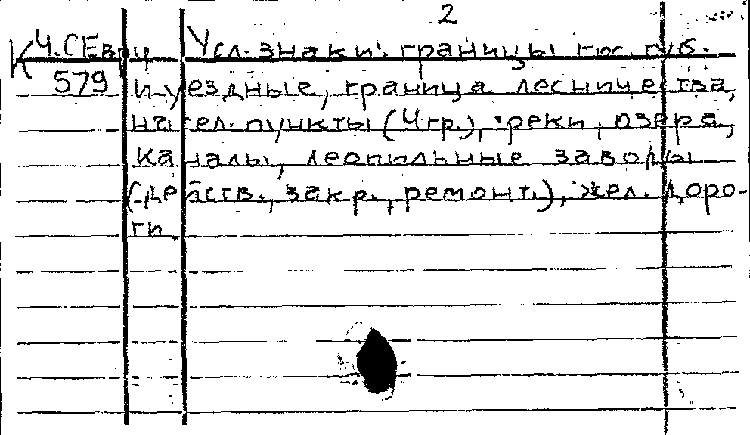 2
К Ч.СЕвр Усл. знаки: границы гос. губ.
579 и уездные, граница лесничества,
насел. пункты (4 гр.), реки, озера,
каналы, лесопильные заводы
(действ., закр., ремонт.), жел. доро-
ги.